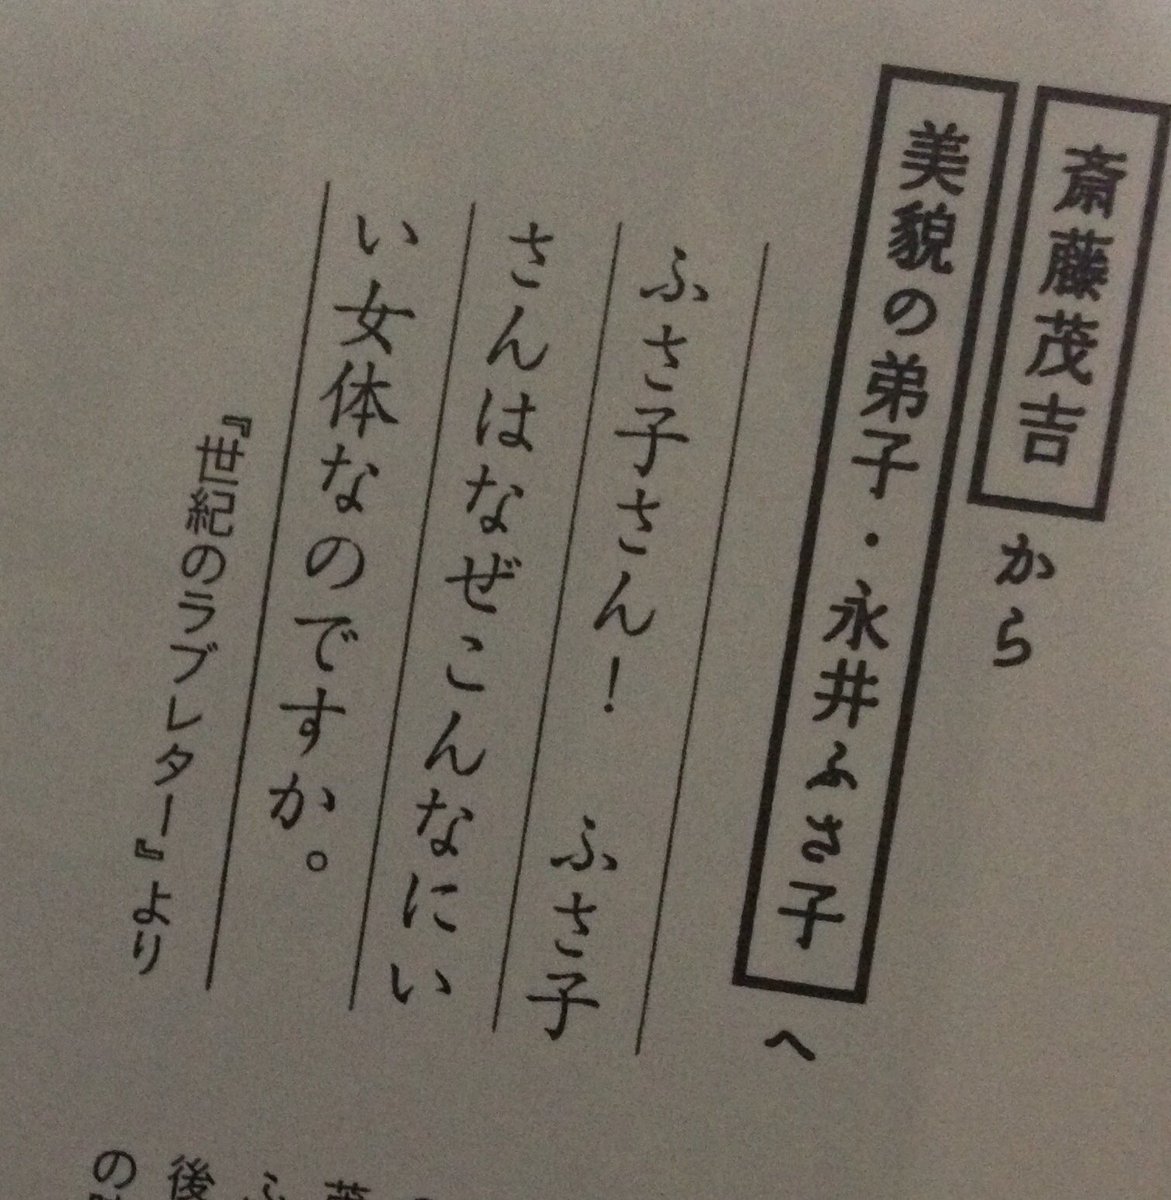 斎藤茂吉から
美貌の弟子・永井ふさ子へ
ふさ子さん！　ふさ子
さんはなぜこんなにい
い女体なのですか。
『世紀のラブレター』より
ふ
後
の